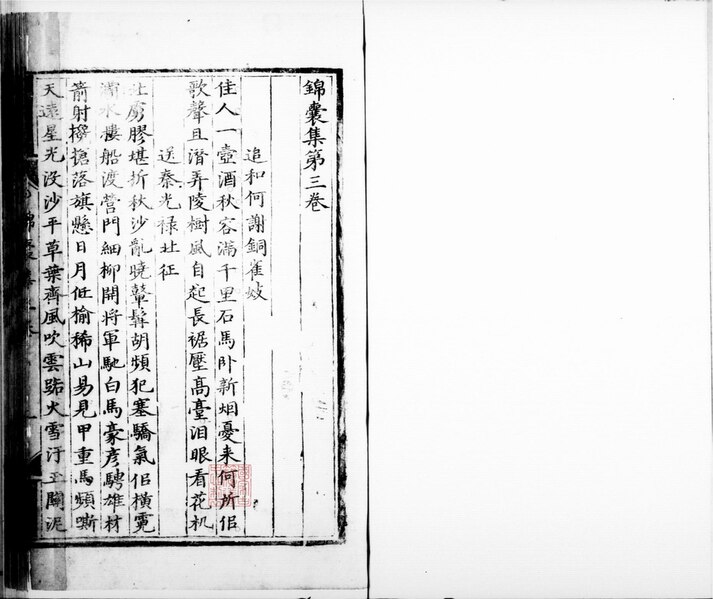 錦囊集第三卷
追和何謝銅雀妓
佳人一壺酒秋容滿千里石馬卧新烟憂来何所佀
歌聲且潛弄陵樹風自起長裾壓髙臺泪眼看花机
送秦光禄北征
北虜膠堪折秋沙亂曉鼙髯胡頻犯塞驕氣佀橫霓
灞水樓船渡營門細柳開將軍馳白馬豪彦騁雄材
箭射欃搶落旗懸日月低榆稀山易見甲重馬頻嘶
天遠星光没沙平草葉齊風吹雲路火雪汙玉關泥